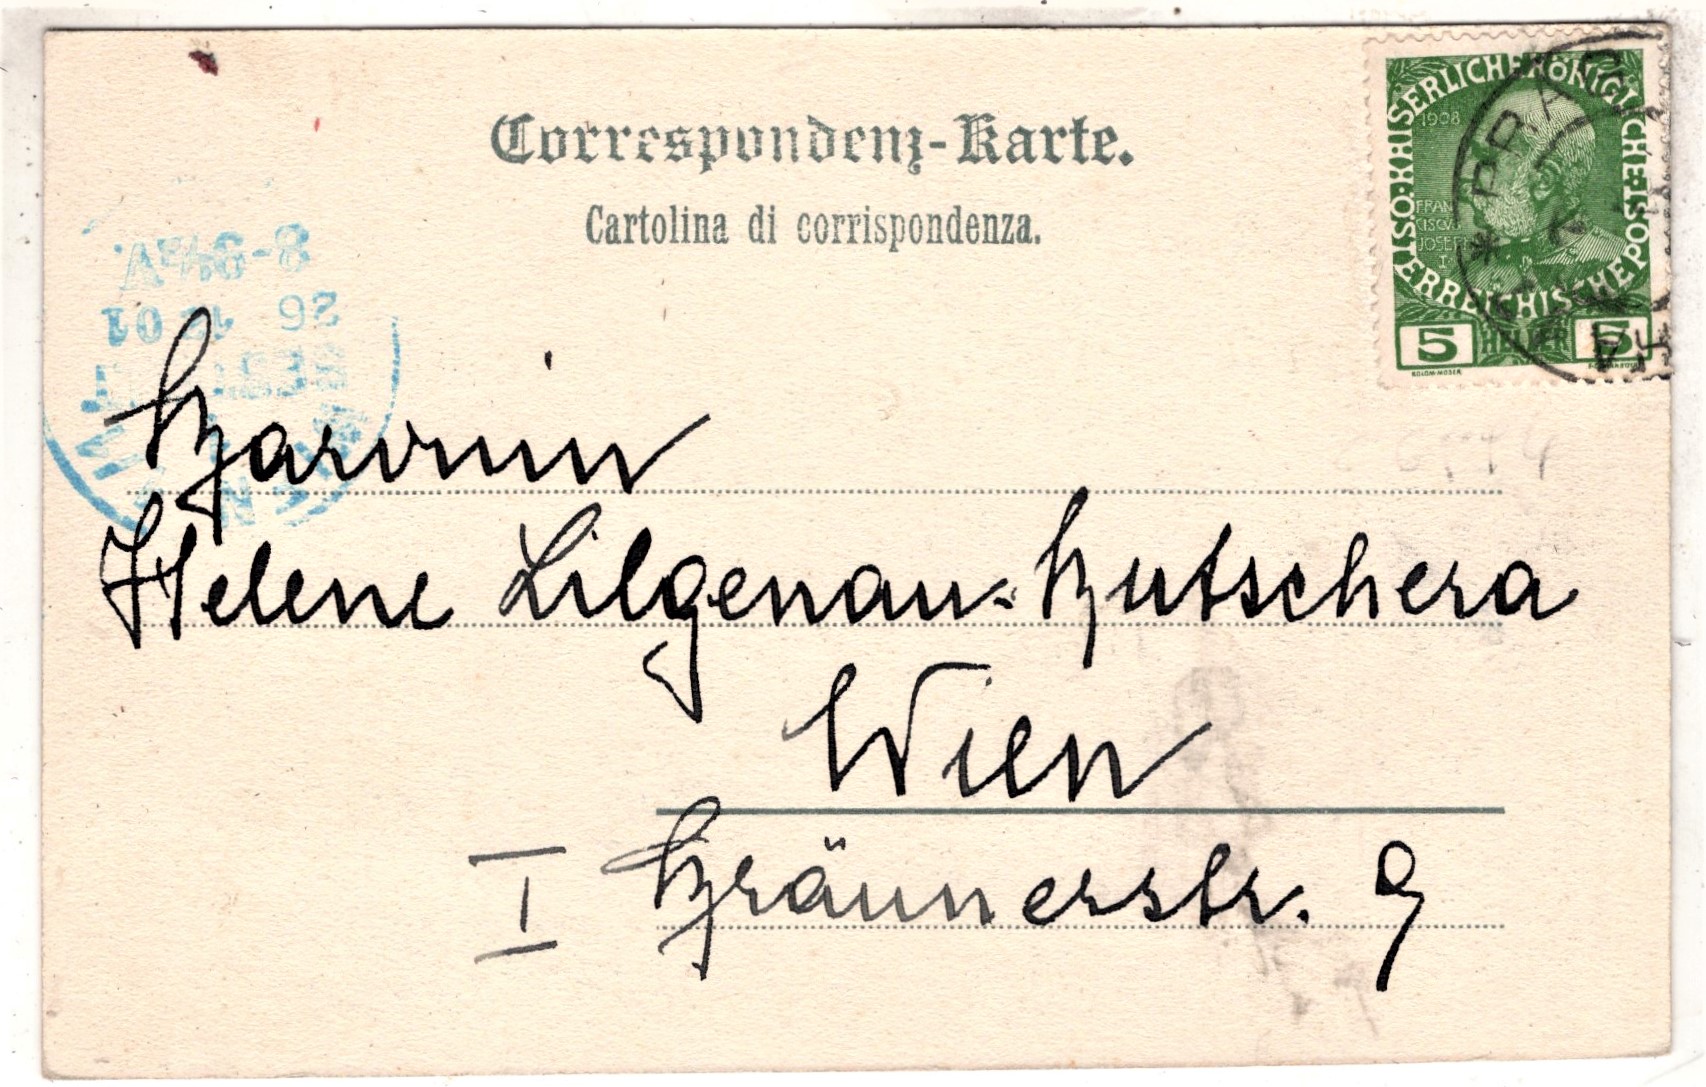 Correspondenz-Karte.
Cartolina di corrispondenza.
KAISERLICHE KÖNIGLICHE ÖSTERREICHISCHE POST
1908
FRAN
CISCVS
JOSEPH
I
5 HELLER 5
PRAG
BESTELLT
WIEN
Baronin
Helene Lilgenau-Kutschera
Wien
I Bräunerstr. 9